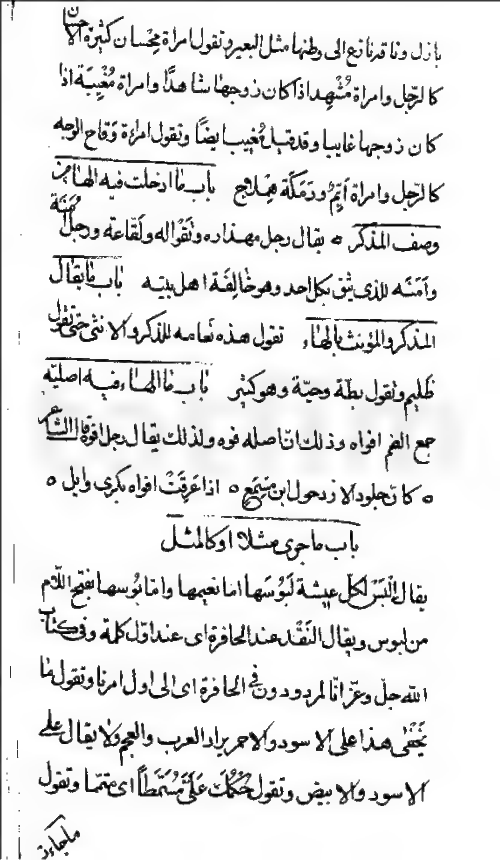 بازل وناقة نازع الى وطنها مثل البعير وتقول امراة محسان كثيرة الاحسان
كالرجل وامراة مُشْهِد اذا كان زوجها شاهدًا وامراة مُغْيِبَة اذا
كان زوجها غايبا وقد قيل مُغيب ايضًا وتقول امراءة وَقاح الوجه
كالرجل وامراة أيّمٌ ودَمَكَة هملاج باب ما ادخلت فيه الهاء من
وصف المذكر ه يقال رجل مهذاره وتِقْواله ولَقّاعة ورجل أُمَنَة
وأمَنَه للذى يثق بكل احد وهو خالِفَة اهل بيته باب ما يقال
المذكر والمؤنث بالهاء تقول هذه نعامه للذكر والانثى حتى تقول
ظليم وتقول بطة وحيّة وهو كثير باب ما الهاء فيه اصليّه
جمع الفم افواه وذلك انّ اصله فوه ولذلك يقال رجل افوه قال الشاعر
ه كان جلود الازد حول ابن مِسْمَع ه اذا عَرِقَتْ افواه بكر بن وايل ه
باب ما جرى مثلا او كالمثل
يقال الْبَسْ لكل عيشة لَبُوسَها اما نعيمها واما بُوسها بفتح اللام
من لبوس ويقال النَقْد عند الحافرة اى عند اوّل كلمة وفى كتاب
الله جل وعز انا لمردودون فى الحافرة اى الى اول امرنا وتقول ما
يَخْفى هذا على الاسود والاحمر يراد العرب والعجم ولا يقال على
الاسود والابيض وتقول حُكْمُكَ عَلَىَّ مُسَمَّطاً اى متمّا وتقول
ما جاءت